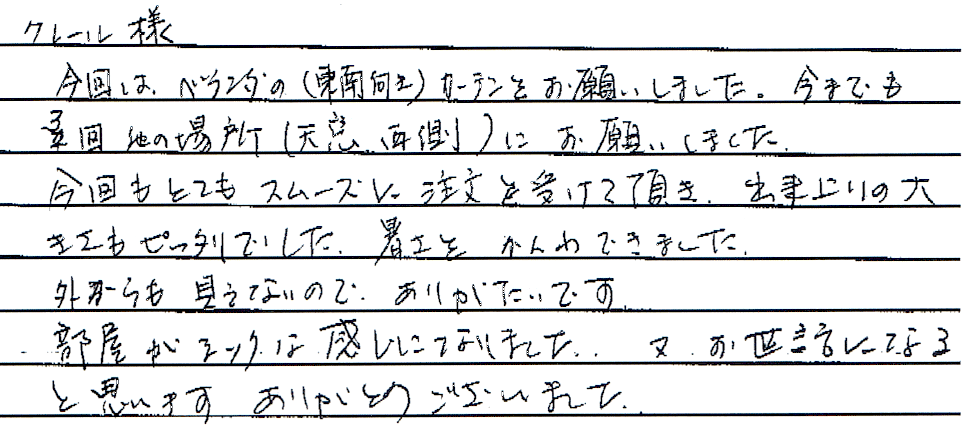 クレール様
今回は、ベランダの(東南向き)カーテンをお願いしました。今までも
2回他の場所(天窓、西側)にお願いしました。
今回もとてもスムーズに注文を受けて頂き、出来上りの大
きさもピッタリでした。暑さをかんわできました。
外からも見えないので、ありがたいです。
部屋がシックな感じになりました。又、お世話になる
と思います ありがとうございました。